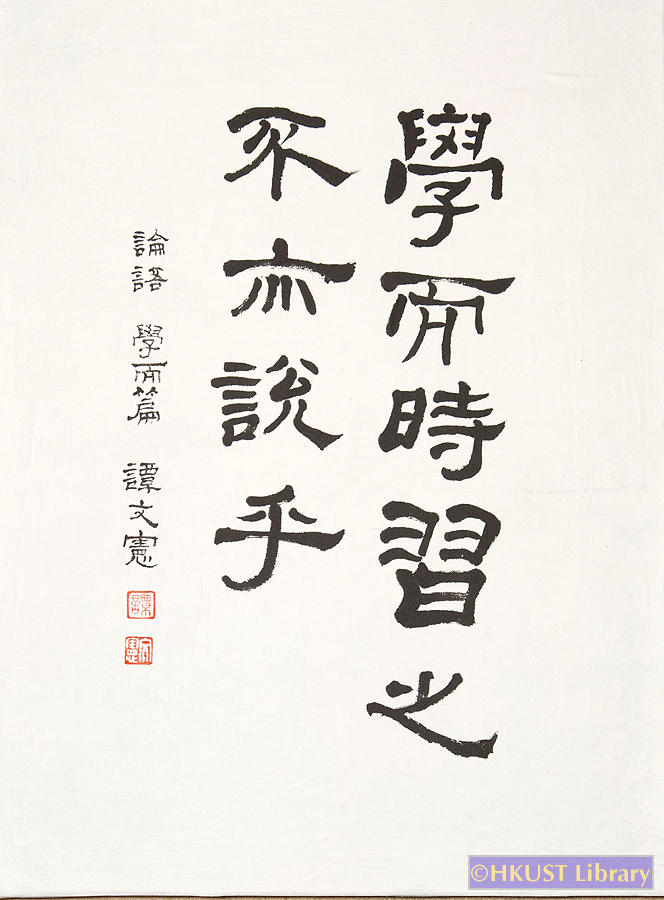 學而時習之
不亦說乎
論語 學而篇 譚文憲
譚
文憲
©HKUST Library